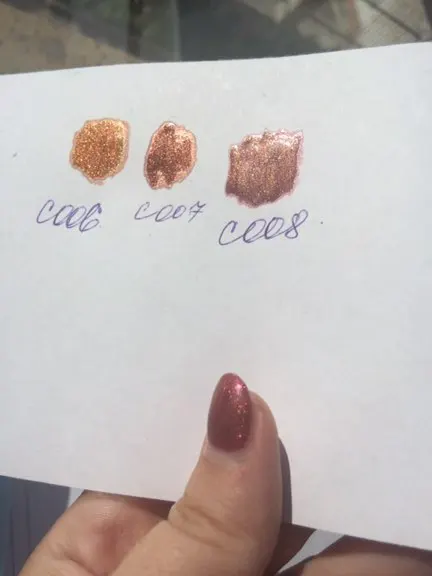 C006 C007 C008